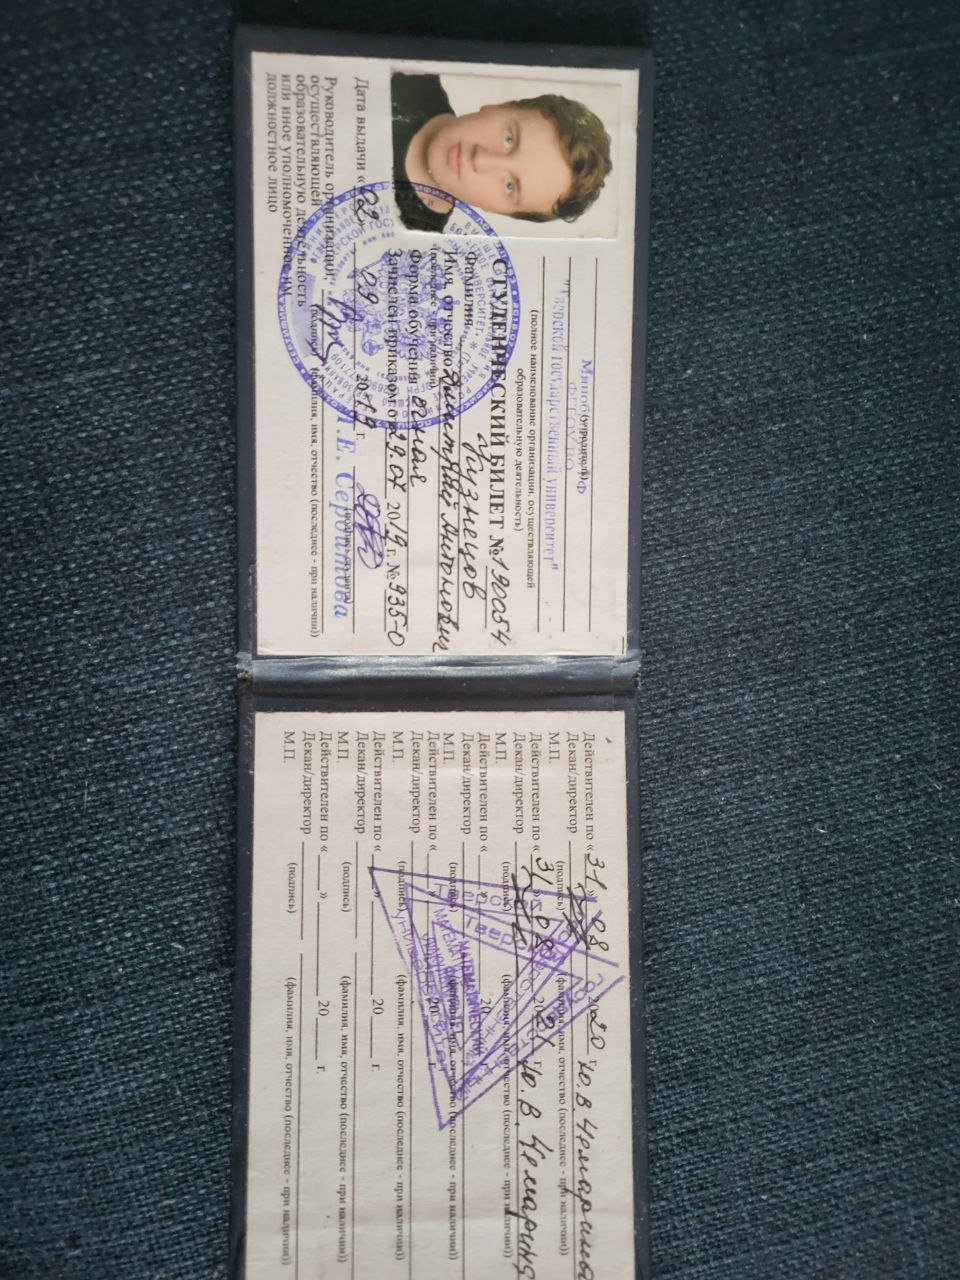 Минобрнауки РФ
(учредитель)
ФГБОУ ВО
"Тверской государственный университет"
(полное наименование организации, осуществляющей
образовательную деятельность)
СТУДЕНЧЕСКИЙ БИЛЕТ № 190054
Фамилия Кузнецов
Имя, отчество Дмитрий Антонович
(последнее - при наличии)
Форма обучения очная
Зачислен приказом от 29.07 2019 г. № 935-О
(подпись студента)
Дата выдачи «02» 09 2019 г.
Руководитель организации,
осуществляющей
образовательную деятельность
или иное уполномоченное им
должностное лицо
(подпись) (фамилия, имя, отчество (последнее - при наличии))
Л.Е. Сердитова
Действителен по «31» 08 2020 г.
Декан/директор Ю.В. Чемарина
М.П. (подпись) (фамилия, имя, отчество (последнее - при наличии))
Действителен по «31» 08 2021 г.
Декан/директор Ю.В. Чемарина
М.П. (подпись) (фамилия, имя, отчество (последнее - при наличии))
Действителен по « » 20 г.
Декан/директор
М.П. (подпись) (фамилия, имя, отчество (последнее - при наличии))
Действителен по « » 20 г.
Декан/директор
М.П. (подпись) (фамилия, имя, отчество (последнее - при наличии))
Действителен по « » 20 г.
Декан/директор
М.П. (подпись) (фамилия, имя, отчество (последнее - при наличии))
Действителен по « » 20 г.
Декан/директор
М.П. (подпись) (фамилия, имя, отчество (последнее - при наличии))
МАТЕМАТИЧЕСКИЙ